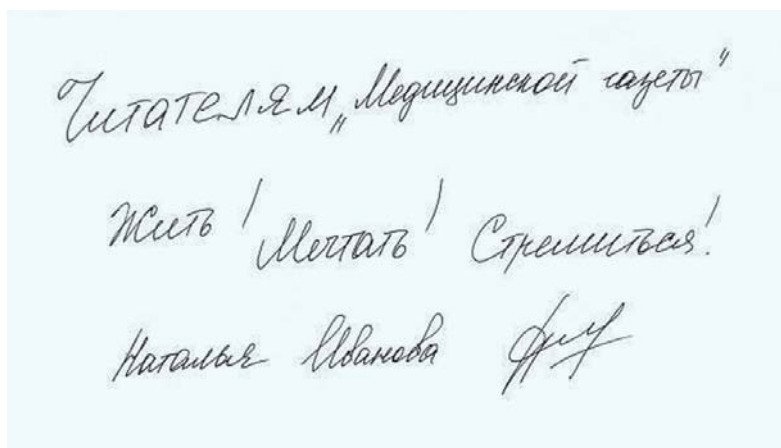 Читателям „Медицинской газеты"
Жить! Мечтать! Стремиться!
Наталья Иванова